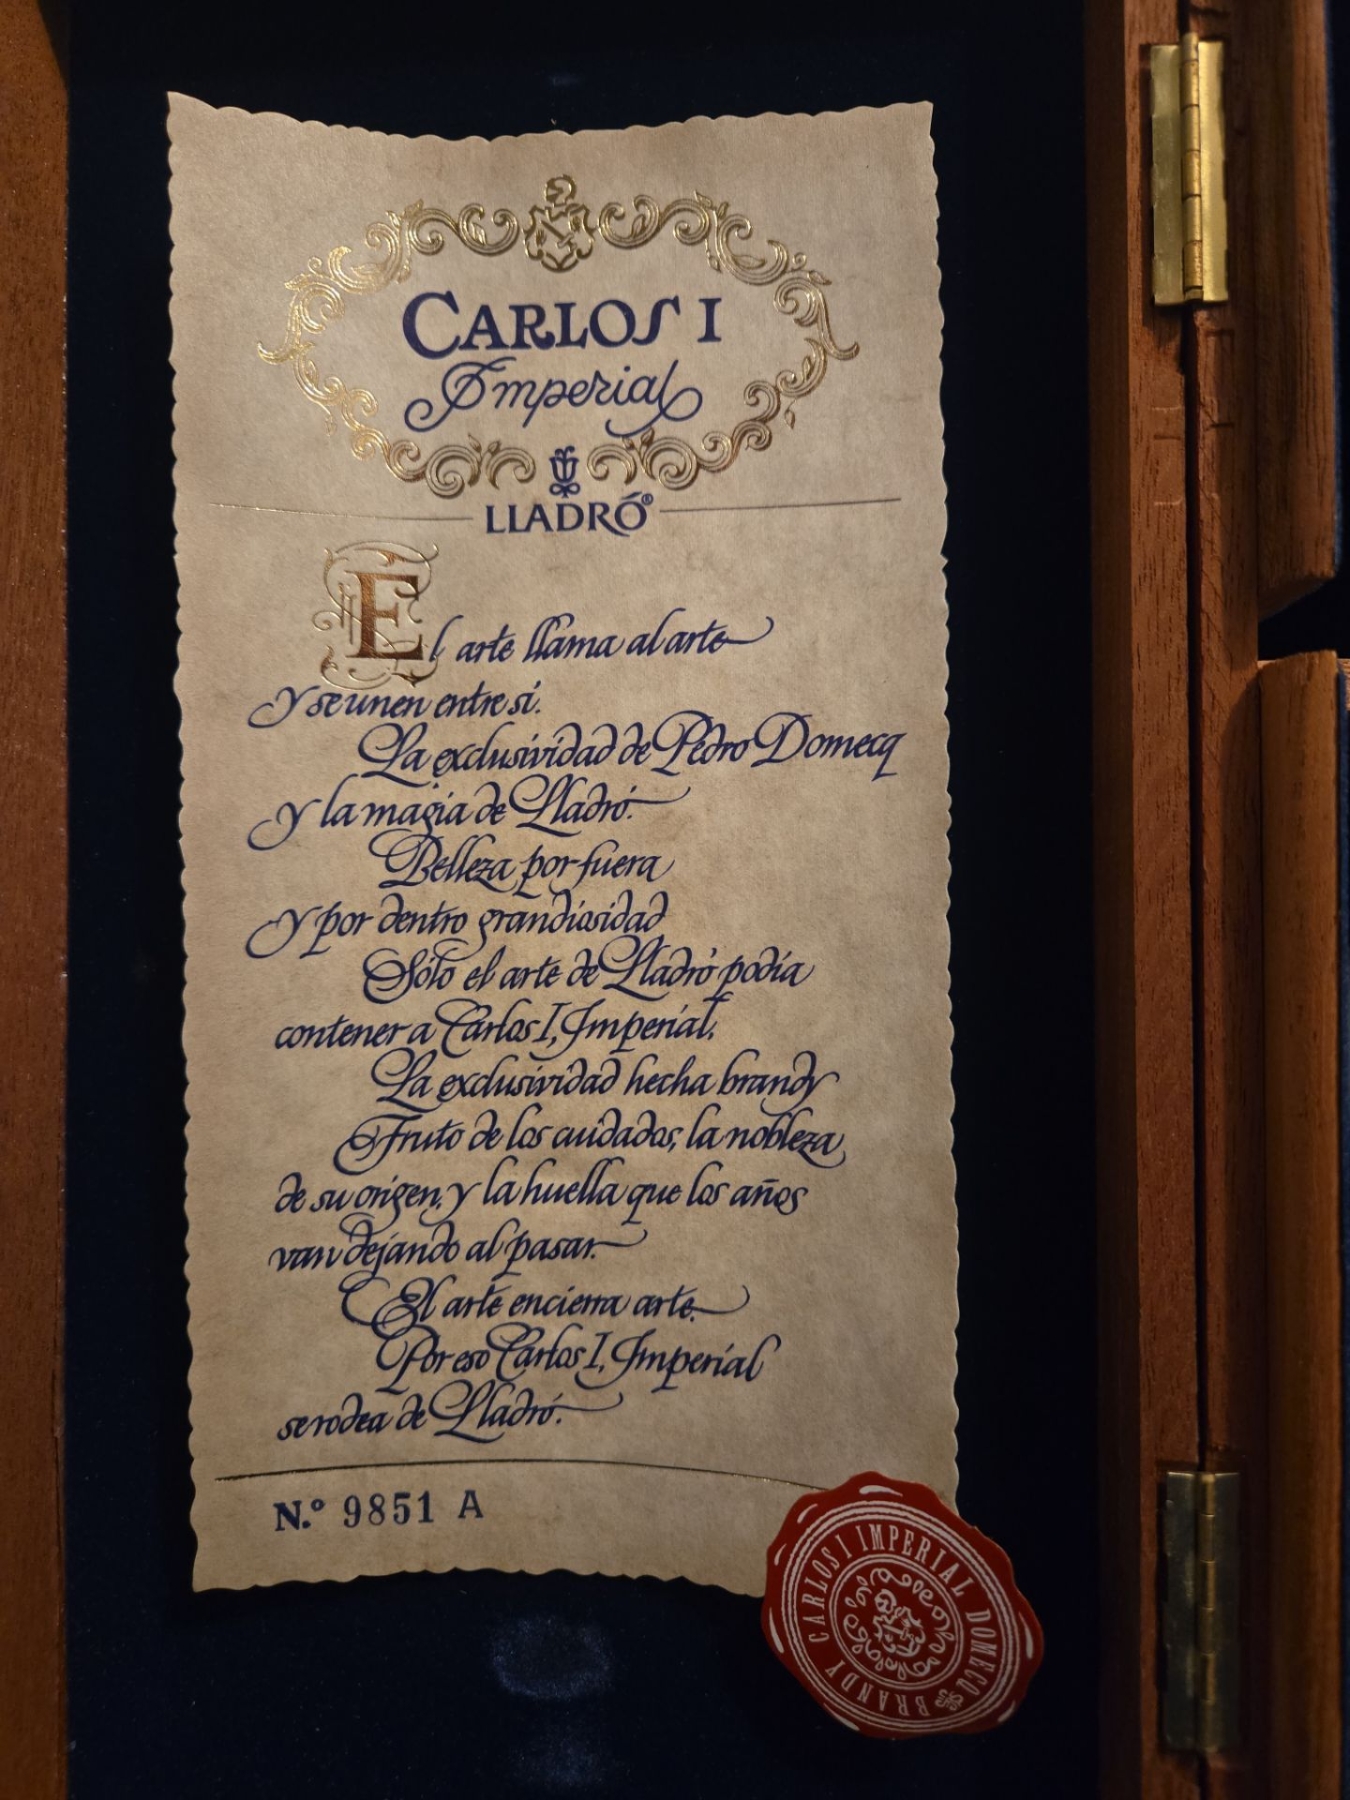 CARLOS I
Imperial
LLADRÓ®
El arte llama al arte
y se unen entre sí.
La exclusividad de Pedro Domecq
y la magia de Lladró.
Belleza por fuera
y por dentro grandiosidad
Sólo el arte de Lladró podía
contener a Carlos I, Imperial.
La exclusividad hecha brandy
Fruto de los cuidados, la nobleza
de su origen, y la huella que los años
van dejando al pasar.
El arte encierra arte.
Por eso Carlos I, Imperial
se rodea de Lladró.
N.º 9851 A
BRANDY CARLOS I IMPERIAL DOMECQ